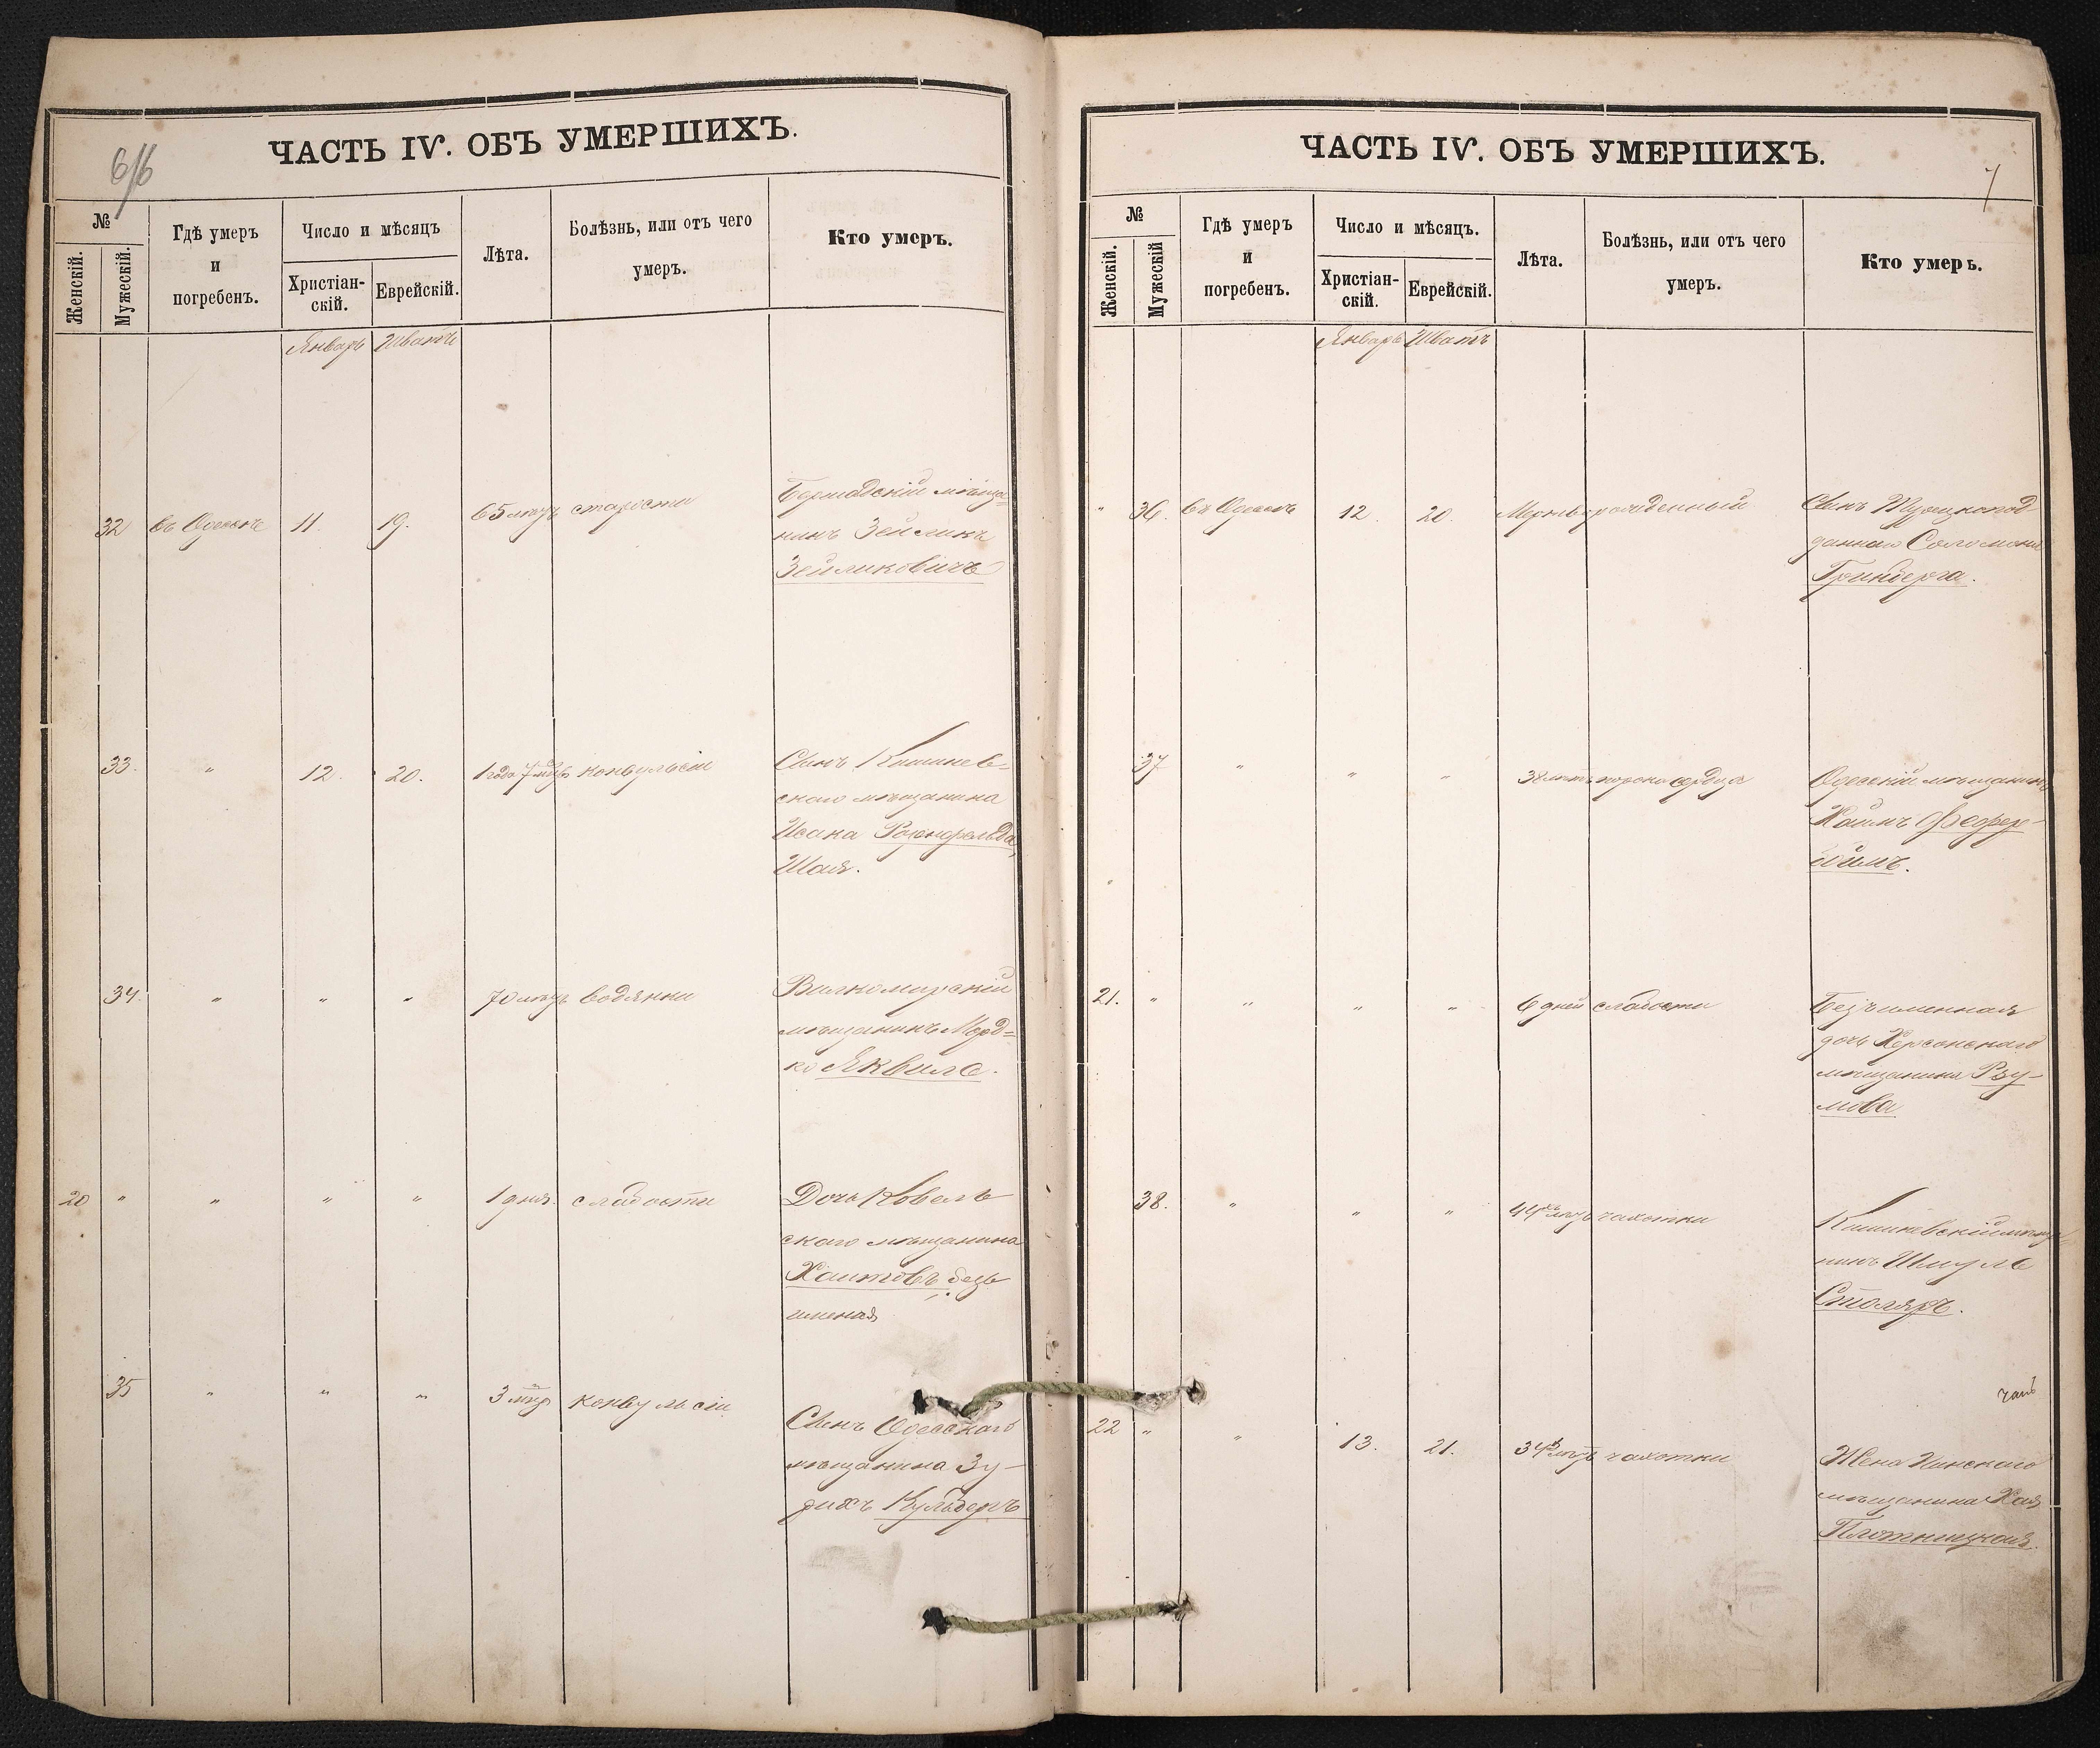 6/6
ЧАСТЬ IV. ОБЪ УМЕРШИХЪ.
№
Женскій.
Мужескій.
Гдѣ умеръ
и
погребенъ.
Число и мѣсяцъ
Христіан-
скій.
Еврейскій.
Лѣта.
Болѣзнь, или отъ чего
умеръ.
Кто умеръ.
Январь Шватъ
32 въ Одессѣ 11. 19. 65 лѣтъ старости
Бершадскій мѣща-
нинъ Зейликъ
Зейликовичъ
33. " 12. 20. 1 года 7 мцъ конвульсіи
Сынъ Кишинев-
скаго мѣщанина
Исака Розенфельда,
Шая.
34. " " " 70 лѣтъ водянки
Вилкомирскій
мѣщанинъ Морд-
ко Яквиль.
20 " " " " 1 дня. слабости
Дочь Ковель
скаго мѣщанина
Хаитовъ безъ
именая
35 " " " 3 мцъ конвульсіи
Сынъ Одесскаго
мѣщанина Зу-
рихъ
7
ЧАСТЬ IV. ОБЪ УМЕРШИХЪ.
№
Женскій.
Мужескій
Гдѣ умеръ
и
погребенъ.
Число и мѣсяцъ.
Христіан-
скій.
Еврейскій.
Лѣта.
Болѣзнь, или отъ чего
умеръ.
Кто умеръ.
Январь Шватъ
" 36. въ Одессѣ 12. 20. Мертворожденный
Сынъ Турецкопод
даннаго Соломона
Гринберга.
37 " " " 38 лѣтъ порока сердца
Одесскій мѣщанинъ
Хаимъ Фефер-
21. " " " " 6 дней слабости
Безъименная
дочь Херсонскаго
мѣщанина Рзу-
мова
38. " " " 44хъ лѣтъ чахотки
Кишиневскій мѣща
нинъ Шмуль
Столяръ.
22 " " 13. 21. 34 лѣтъ чахотки
Жена Пинскаго
мѣщанина Хая
Плотницкая.